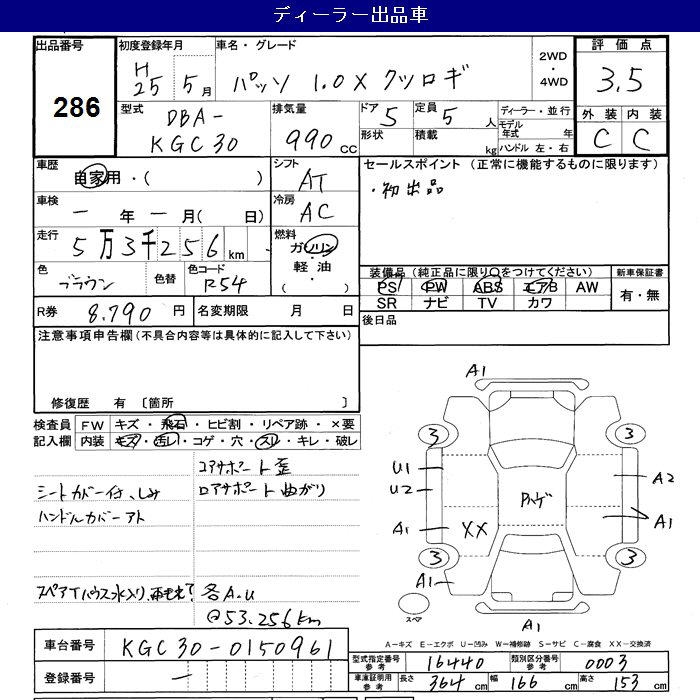 ディーラー出品車
出品番号
286
初度登録年月
H 25 5月
車名・グレード
パッソ 1.0X クツロギ
2WD・4WD
評価点
3.5
型式
DBA-
KGC30
排気量
990 cc
ドア 5
定員 5 人
形状
積載 kg
ディーラー・並行
モデル年式 年
ハンドル 左・右
外装 内装
C C
車歴
自家用・( )
シフト
AT
セールスポイント (正常に機能するものに限ります)
・初出品
車検
ー年ー月( 日)
冷房
AC
走行
5万3千256km
燃料
ガソリン・軽油
色
ブラウン
色替
色コード
R54
装備品(純正品に限り○をつけてください)
新車保証書
PS PW ABS エアB AW
SR ナビ TV カワ
有・無
R券 8,790 円
名変期限 月 日
後日品
注意事項申告欄(不具合内容等は具体的に記入して下さい)
修復歴 有 〔箇所 〕
検査員記入欄
FW キズ・飛石・ヒビ割・リペア跡・×要
内装 キズ・汚レ・コゲ・穴・スレ・キレ・破レ
コアサポート歪
シートカバー付、しみ
ロアサポート曲がり
ハンドルカバーアト
各A.U
@53.256km
A1
3 3
U1
U2
A2
ハゲ
A1 XX
A1
3 3
A1
スペア
A1
A-キズ E-エクボ U-凹み W-補修跡 S-サビ C-腐食 XX-交換済
車台番号 KGC30-0150961
型式指定番号参考 16440
類別区分番号参考 0003
登録番号 ー
車庫証明用参考 長さ 364cm 幅 166cm 高さ 153cm